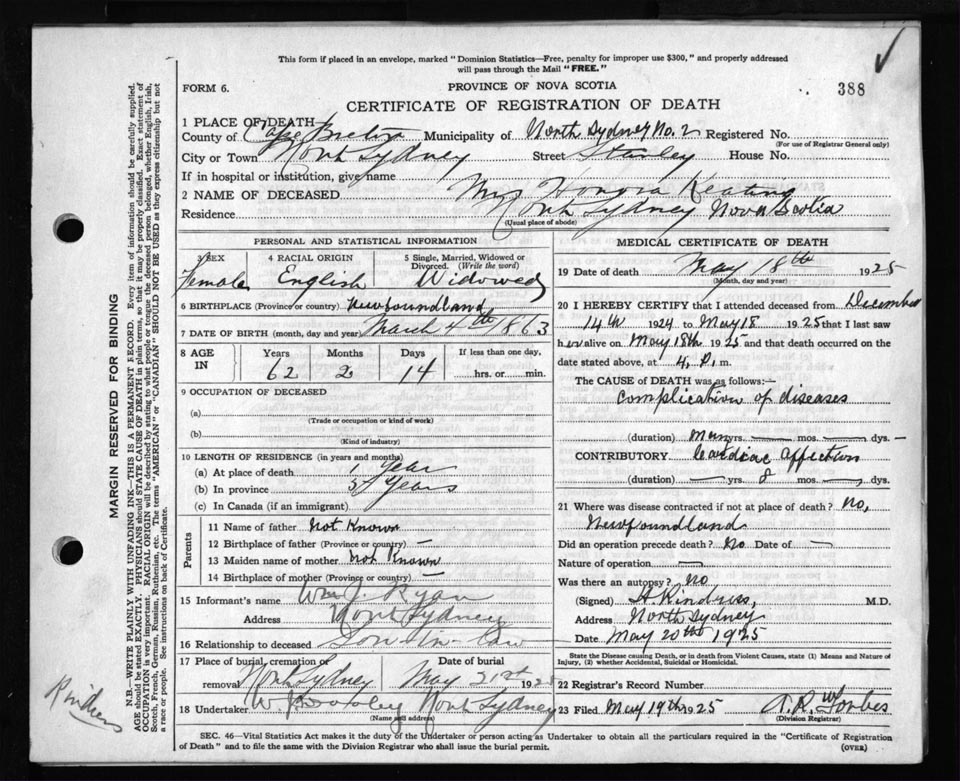 This form if placed in an envelope, marked "Dominion Statistics—Free, penalty for improper use $300," and properly addressed
will pass through the Mail "FREE."
FORM 6.
PROVINCE OF NOVA SCOTIA
388
CERTIFICATE OF REGISTRATION OF DEATH
1 PLACE OF DEATH
County of Cape Breton Municipality of North Sydney No. 2 Registered No.
(For use of Registrar General only)
City or Town North Sydney Street Stanley House No.
If in hospital or institution, give name
2 NAME OF DECEASED Mrs Honora Keating
Residence North Sydney Nova Scotia
(Usual place of abode)
PERSONAL AND STATISTICAL INFORMATION
3 SEX 4 RACIAL ORIGIN 5 Single, Married, Widowed or
Divorced. (Write the word)
Female English Widowed
6 BIRTHPLACE (Province or country) Newfoundland
7 DATE OF BIRTH (month, day and year) March 4th 1863
8 AGE IN Years Months Days If less than one day,
62 2 14 hrs. or min.
9 OCCUPATION OF DECEASED
(a)
(Trade or occupation or kind of work)
(b)
(Kind of industry)
10 LENGTH OF RESIDENCE (in years and months)
(a) At place of death 1 Year
(b) In province Years
(c) In Canada (if an immigrant)
Parents
11 Name of father Not Known
12 Birthplace of father (Province or country) —
13 Maiden name of mother Not Known
14 Birthplace of mother (Province or country) —
15 Informant's name Wm J. Ryan
Address North Sydney
16 Relationship to deceased Son in law
17 Place of burial, cremation or Date of burial
removal North Sydney May 21st 1925
18 Undertaker W. North Sydney
(Name and address)
MEDICAL CERTIFICATE OF DEATH
19 Date of death May 18th 1925
(Month, day and year)
20 I HEREBY CERTIFY that I attended deceased from December
14th 1924 to May 18 1925 that I last saw
her alive on May 18th 1925 and that death occurred on the
date stated above, at 4. P. m.
The CAUSE of DEATH was as follows:—
Complication of diseases
(duration) Many yrs. — mos. — dys. —
CONTRIBUTORY Cardiac affection
(duration) — yrs. 8 mos. dys.
21 Where was disease contracted if not at place of death? No,
Newfoundland
Did an operation precede death? No Date of —
Nature of operation —
Was there an autopsy? No
(Signed) M.D.
Address North Sydney
Date May 20th 1925
State the Disease causing Death, or in death from Violent Causes, state (1) Means and Nature of
Injury, (2) whether Accidental, Suicidal or Homicidal.
22 Registrar's Record Number
23 Filed May 19th 1925 A. R. Forbes
(Division Registrar)
SEC. 46—Vital Statistics Act makes it the duty of the Undertaker or person acting as Undertaker to obtain all the particulars required in the "Certificate of Registration
of Death" and to file the same with the Division Registrar who shall issue the burial permit.
(OVER)
MARGIN RESERVED FOR BINDING
N.B.—WRITE PLAINLY WITH UNFADING INK—THIS IS A PERMANENT RECORD. Every item of information should be carefully supplied.
AGE should be stated EXACTLY. PHYSICIANS should STATE CAUSE OF DEATH in plain terms, so that it may be properly classified. Exact statement of
OCCUPATION is very important. RACIAL ORIGIN will be described by stating to what people or tongue the deceased person belonged, whether English, Irish,
Scotch, French, German, Russian, Ruthenian, etc. The terms "AMERICAN" or "CANADIAN" SHOULD NOT BE USED as they express citizenship but not
a race or people. See instructions on back of Certificate.